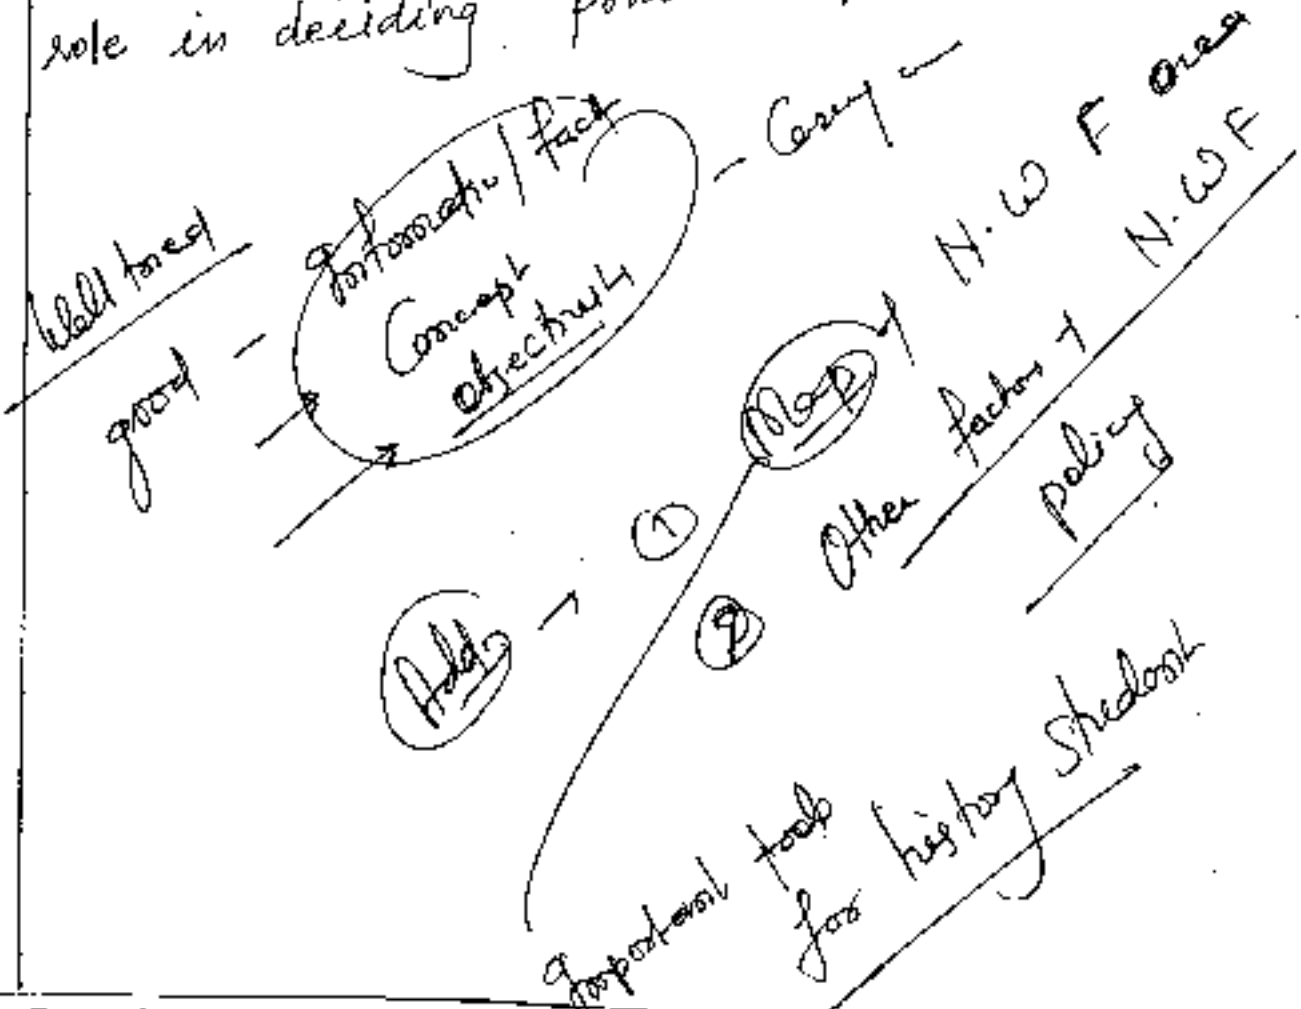 role in deciding
Well tried
good - Information / fact
Concept
objectivity
- Carry on -
Add → ① Map of N.W F area
② Other factors of N.W F
policy
Important tool
for history student